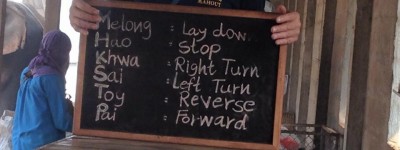 MAHOUT
Melong = Lay down
Hao = Stop
Khwa = Right Turn
Sai = Left Turn
Toy = Reverse
Pai = Forward